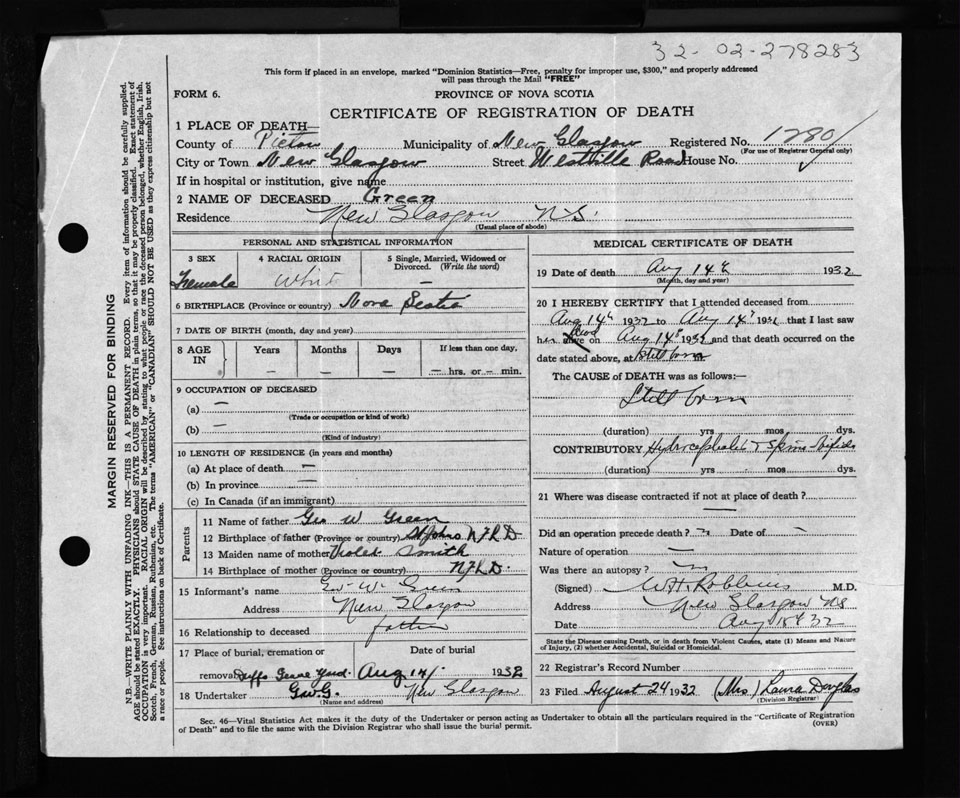 32-02-278283
This form if placed in an envelope, marked "Dominion Statistics—Free, penalty for improper use, $300," and properly addressed
will pass through the Mail "FREE"
FORM 6.
PROVINCE OF NOVA SCOTIA
CERTIFICATE OF REGISTRATION OF DEATH
1 PLACE OF DEATH—
County of Pictou Municipality of New Glasgow Registered No. 1280
(For use of Registrar General only)
City or Town New Glasgow Street Westville Road House No.
If in hospital or institution, give name
2 NAME OF DECEASED Green
Residence New Glasgow N.S.
(Usual place of abode)
PERSONAL AND STATISTICAL INFORMATION
3 SEX
Female
4 RACIAL ORIGIN
White
5 Single, Married, Widowed or
Divorced. (Write the word)
—
6 BIRTHPLACE (Province or country) Nova Scotia
7 DATE OF BIRTH (month, day and year)
8 AGE
IN
Years
—
Months
—
Days
—
If less than one day,
— hrs. or — min.
9 OCCUPATION OF DECEASED
(a) —
(Trade or occupation or kind of work)
(b) —
(Kind of industry)
10 LENGTH OF RESIDENCE (in years and months)
(a) At place of death —
(b) In province —
(c) In Canada (if an immigrant)
Parents
11 Name of father Geo W Green
12 Birthplace of father (Province or country) St Johns NFLD
13 Maiden name of mother Violet Smith
14 Birthplace of mother (Province or country) NFLD.
15 Informant's name W. Green
Address New Glasgow
16 Relationship to deceased father
17 Place of burial, cremation or
Date of burial
removal Duffs Grave Yard Aug 14/. 1932
18 Undertaker G.W.G. New Glasgow
(Name and address)
MEDICAL CERTIFICATE OF DEATH
19 Date of death Aug 14th 1932
(Month, day and year)
20 I HEREBY CERTIFY that I attended deceased from
Aug 14th 1932 to Aug 14th 1932 that I last saw
h alive on Aug 14th 1932 and that death occurred on the
date stated above, at Still born
The CAUSE of DEATH was as follows:—
Still born
(duration) yrs mos dys.
CONTRIBUTORY Hydrocephalus + Spina bifida
(duration) yrs. mos dys.
21 Where was disease contracted if not at place of death?
—
Did an operation precede death? Date of —
Nature of operation —
Was there an autopsy?
(Signed) W.H. Robbins M.D.
Address New Glasgow NS
Date Aug 18th 32
State the Disease causing Death, or in death from Violent Causes, state (1) Means and Nature
of Injury, (2) whether Accidental, Suicidal or Homicidal.
22 Registrar's Record Number
23 Filed August 24 1932 (Mrs.) Laura Douglas
(Division Registrar)
Sec. 46—Vital Statistics Act makes it the duty of the Undertaker or person acting as Undertaker to obtain all the particulars required in the "Certificate of Registration
of Death" and to file the same with the Division Registrar who shall issue the burial permit.
(OVER)
MARGIN RESERVED FOR BINDING
N.B.—WRITE PLAINLY WITH UNFADING INK—THIS IS A PERMANENT RECORD. Every item of information should be carefully supplied.
AGE should be stated EXACTLY. PHYSICIANS should STATE CAUSE OF DEATH in plain terms, so that it may be properly classified. Exact statement of
OCCUPATION is very important. RACIAL ORIGIN will be described by stating to what people or race the deceased person belonged, whether English, Irish,
Scotch, French, German, Russian, Ruthenian, etc. The terms "AMERICAN" or "CANADIAN" SHOULD NOT BE USED as they express citizenship but not
a race or people. See instructions on back of Certificate.